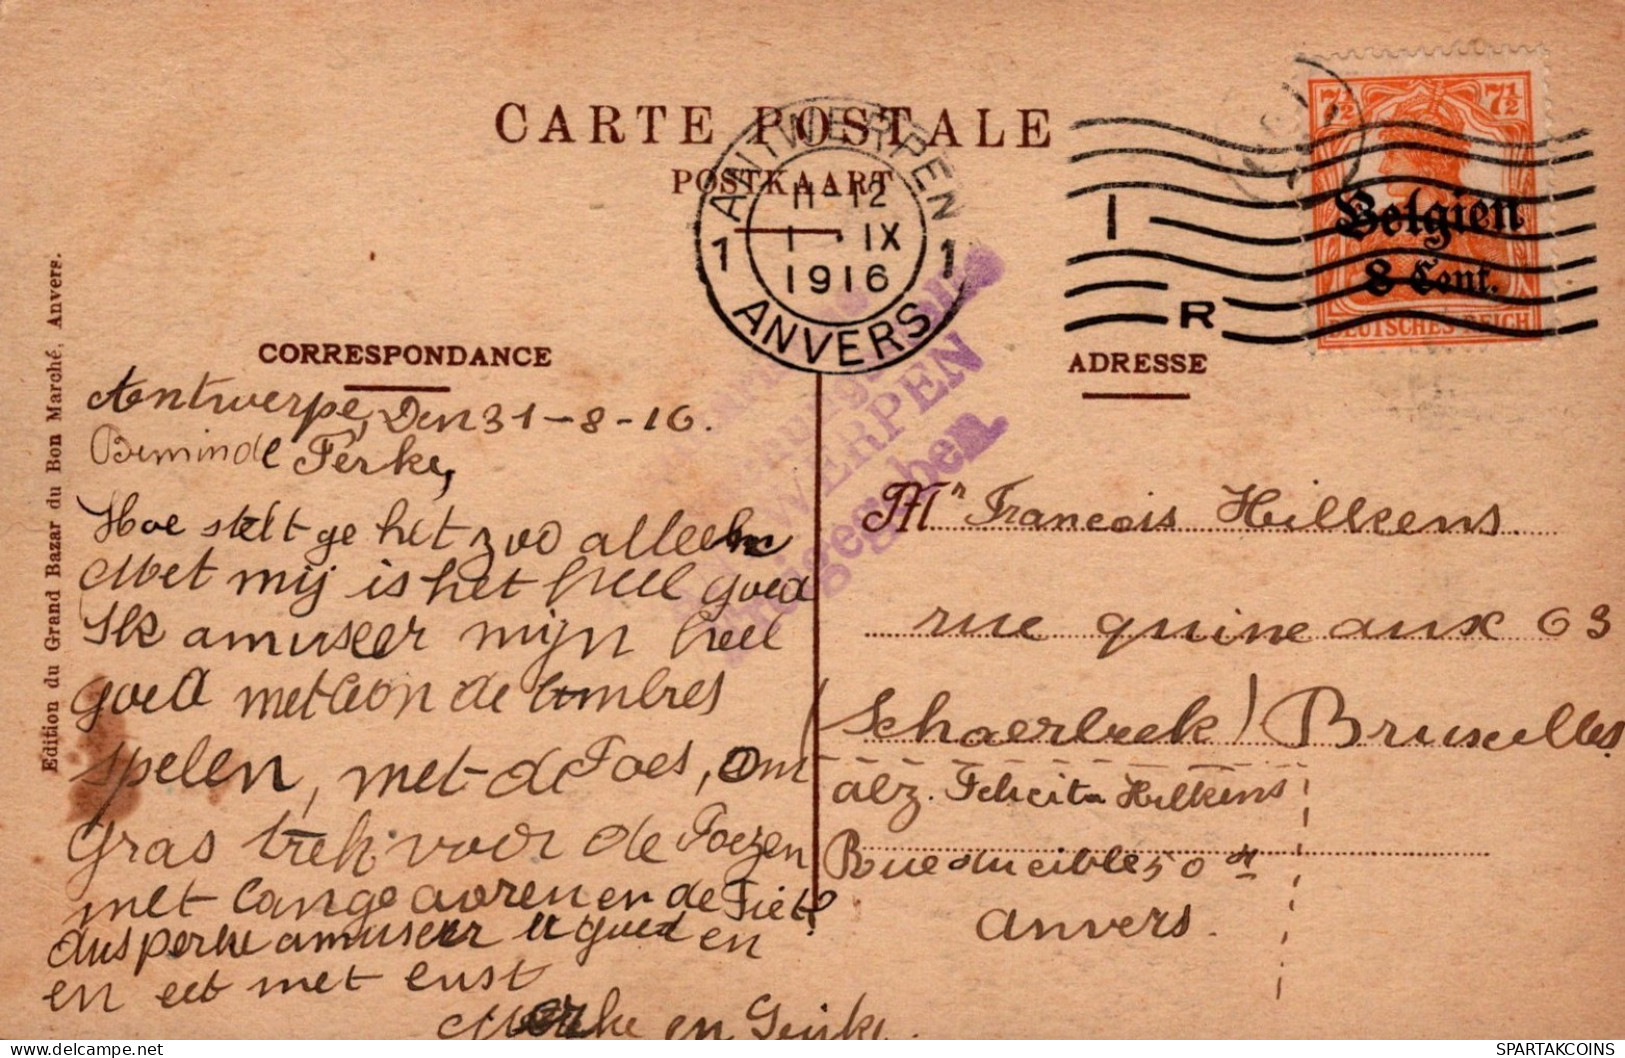 CARTE POSTALE
POSTKAART
ANTWERPEN
11-12
1 · IX
1916
1 1
ANVERS
I
R
7½ 7½
Belgien
8 Cent.
DEUTSCHES REICH
Edition du Grand Bazar du Bon Marché, Anvers.
CORRESPONDANCE
ADRESSE
ANTWERPEN
Freigegeben.
Antwerpe, Den 31-8-16.
Beminde Ferke,
Hoe stelt ge het zoo alleen
Met mij is het heel goed
Ik amuseer mijn heel
goed met Leon de ombres
spelen, met de Foes, om
gras trek voor de Foezen
met lange ooren en de Fiet
dus perke amuseer u goed en
en eet met eust
Merke en
Mr Francois Hillkens
rue quineaux 63
(Schaerbeek) Bruxelles
afz. Felicita Hilkens
Rue du cible 50
Anvers.
SPARTAKCOINS